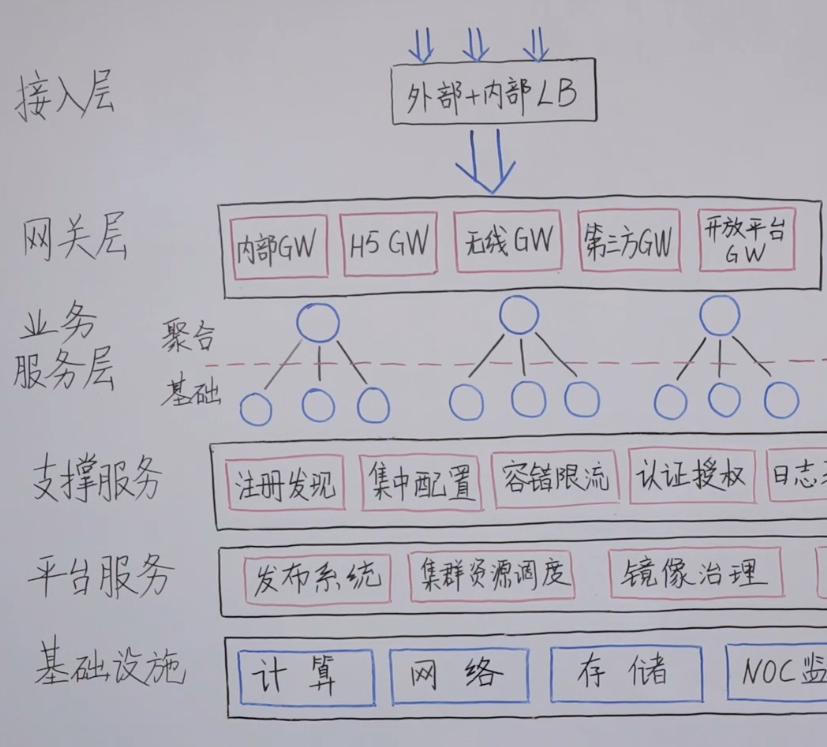 接入层
外部+内部LB
网关层
内部GW
H5 GW
无线GW
第三方GW
开放平台
GW
业务
服务层
聚合
基础
支撑服务
注册发现
集中配置
容错限流
认证授权
日志
平台服务
发布系统
集群资源调度
镜像治理
基础设施
计算
网络
存储
NOC监